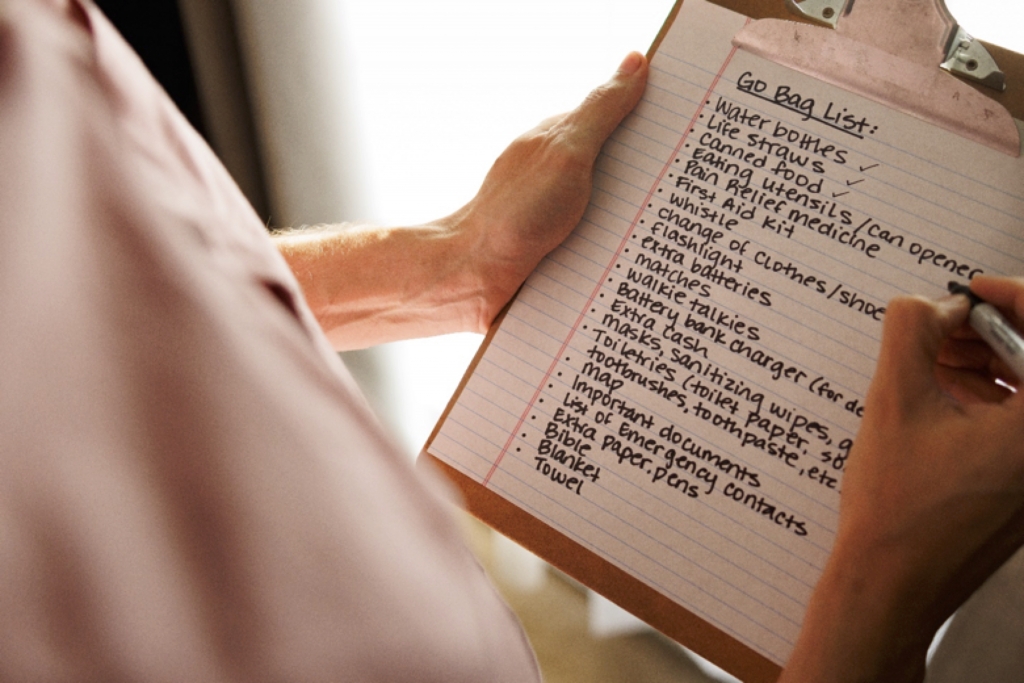 Go Bag List:
• Water bottles ✓
• Life straws ✓
• Canned food ✓
• Eating utensils / can opener
• Pain Relief medicine
• First Aid Kit
• whistle
• change of clothes / shoe
• flashlight
• extra batteries
• matches
• walkie talkies
• Battery bank charger (for de
• Extra cash
• masks, sanitizing wipes, g
• Toiletries (toilet paper, so
toothbrushes, toothpaste, etc.
• map
• Important documents
• List of Emergency contacts
• Extra paper, pens
• Bible
• Blanket
• Towel